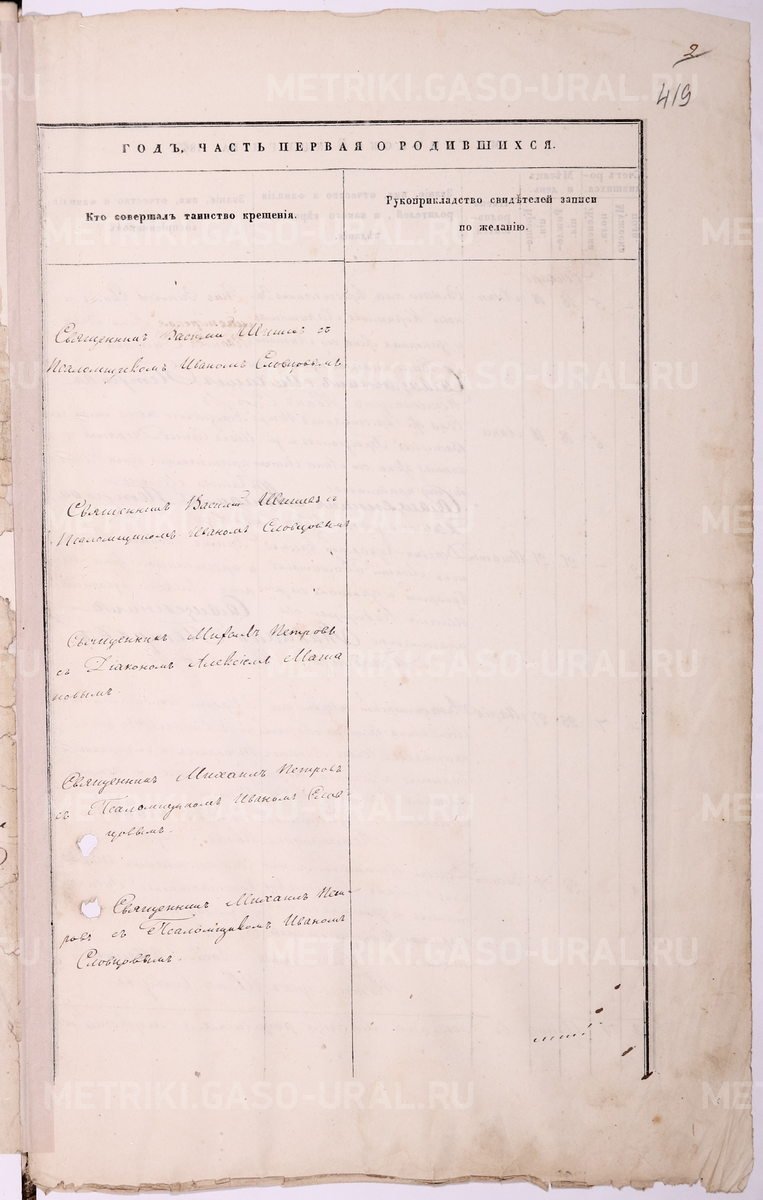 2
419
ГОДЪ, ЧАСТЬ ПЕРВАЯ О РОДИВШИХСЯ.
Кто совершалъ таинство крещенія.
Рукоприкладство свидѣтелей записи
по желанію.
Священникъ Василій съ
Псаломщикомъ Иваномъ Словцовымъ
Священникъ Василій съ
Псаломщикомъ Иваномъ Словцовымъ
Священникъ Михаилъ Петровъ
съ Діакономъ Алексіемъ
новымъ.
Священникъ Михаилъ Петровъ
съ Псаломщикомъ Иваномъ Слов-
цовымъ.
Священникъ Михаилъ Пет-
ровъ съ Псаломщикомъ Иваномъ
Словцовымъ.
METRIKI.GASO-URAL.RU